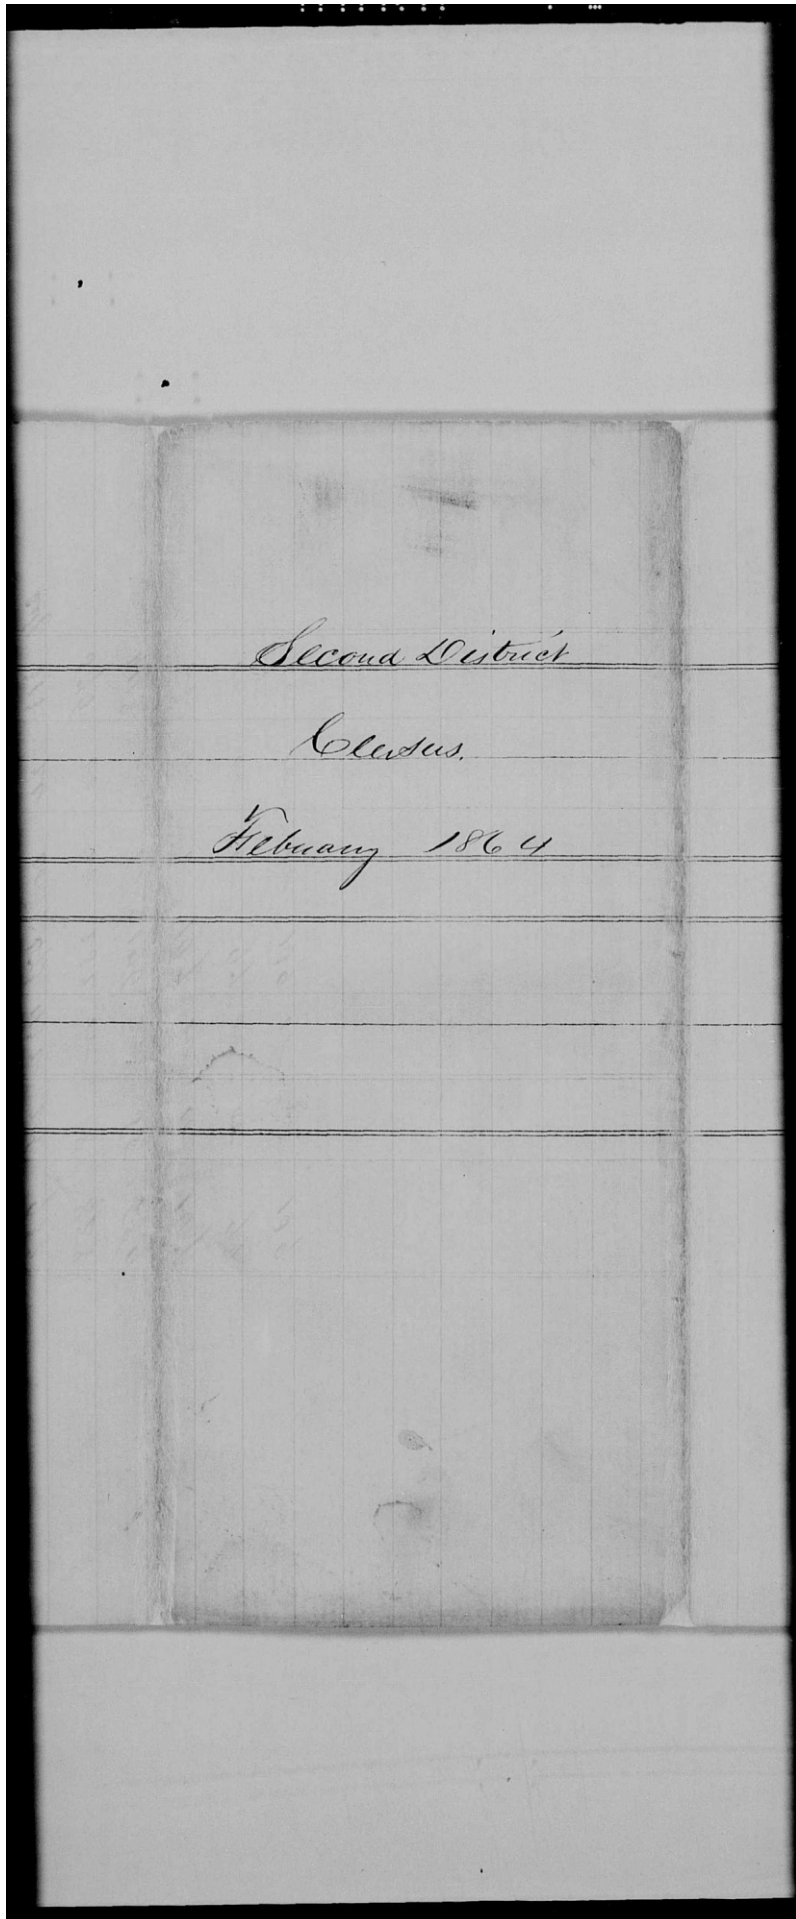 Second District
Census.
Febuary 1864